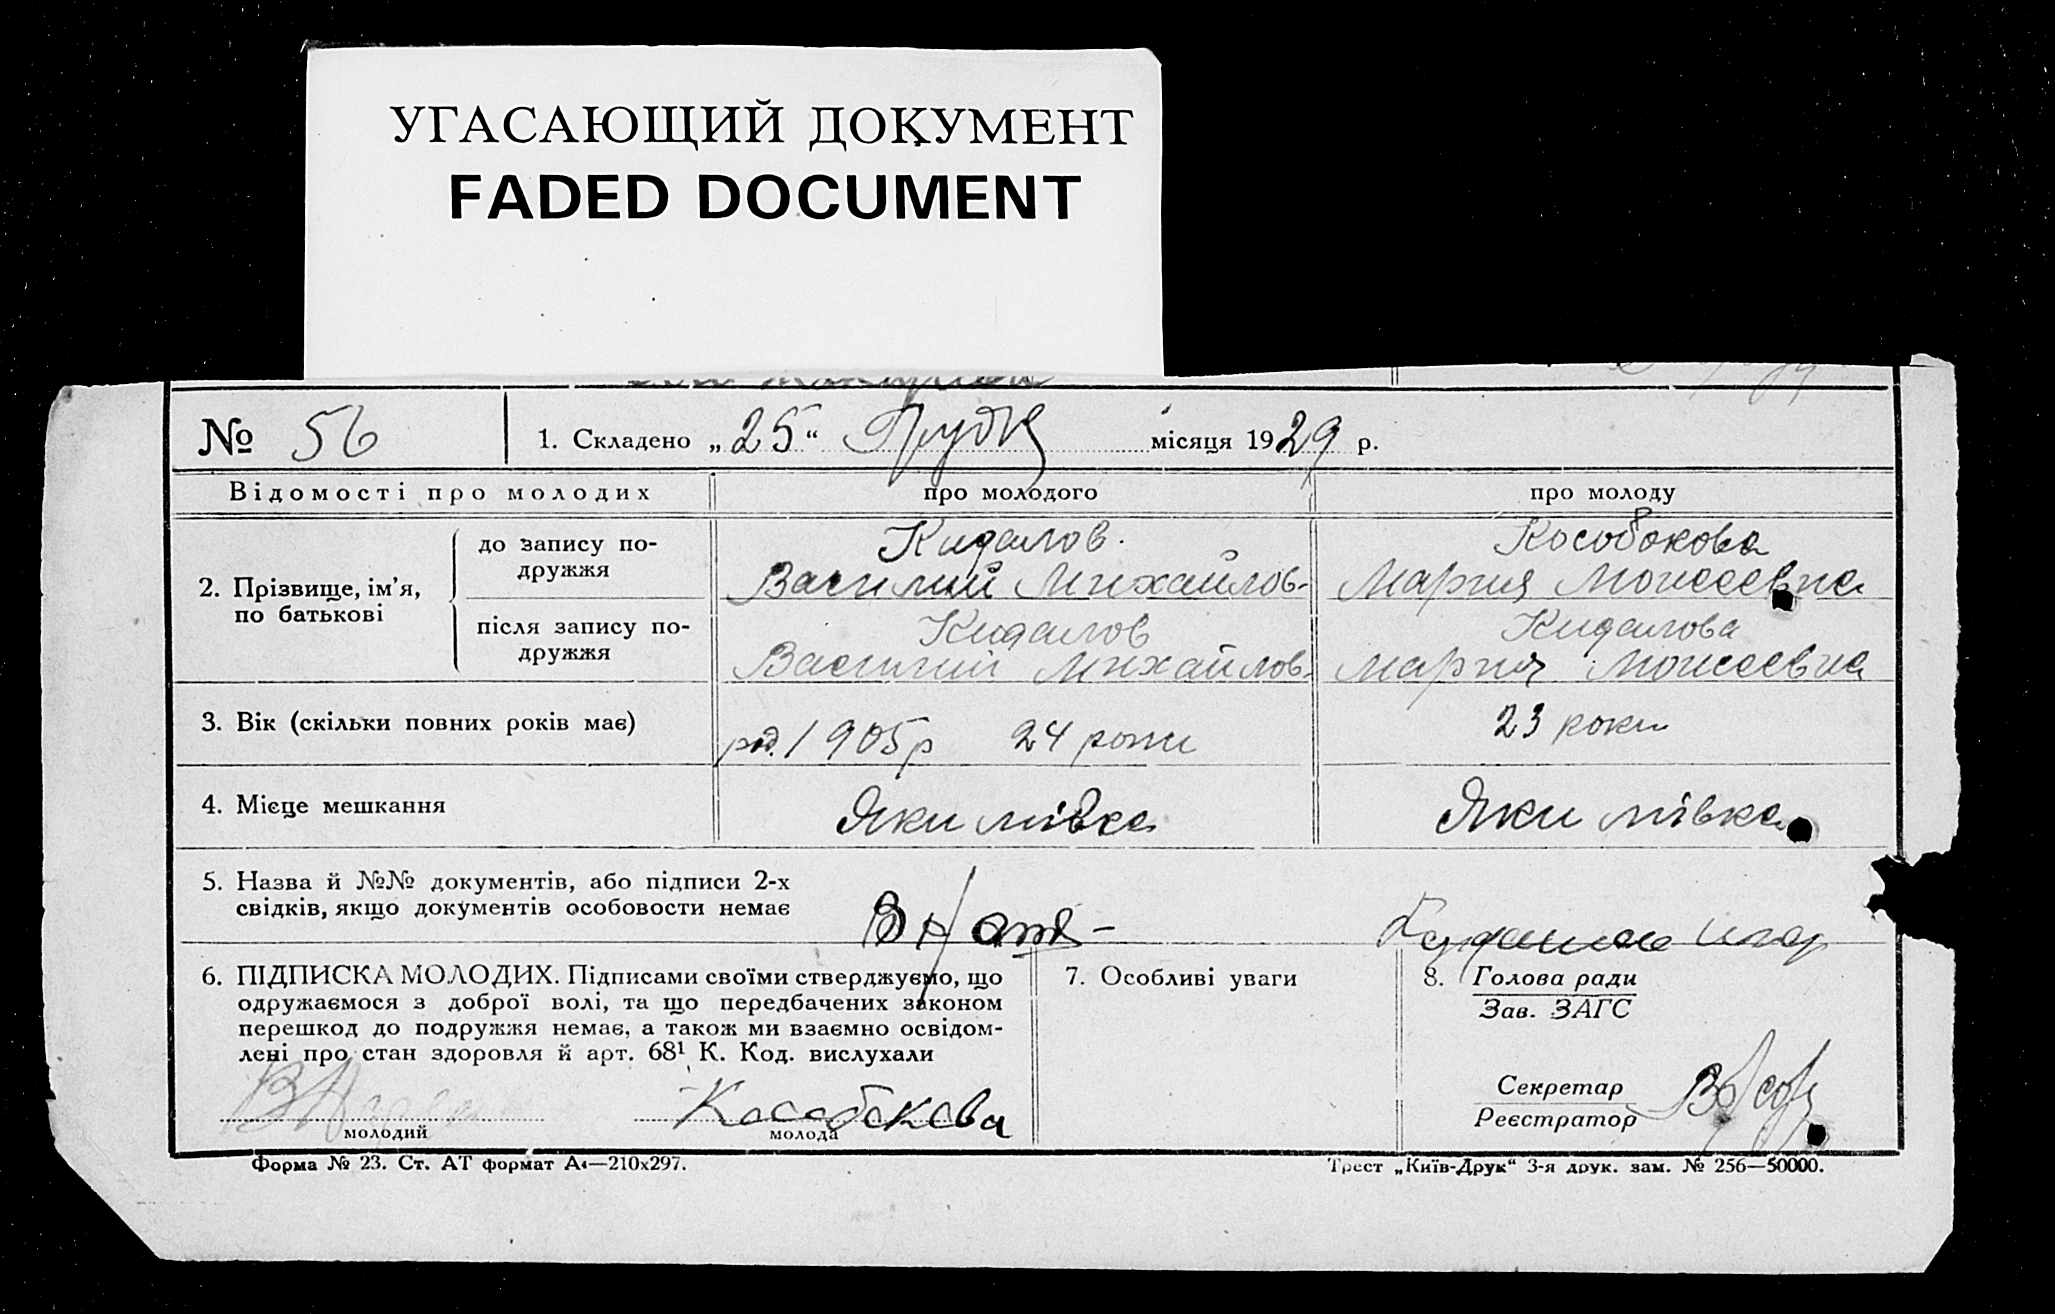 УГАСАЮЩИЙ ДОКУМЕНТ
FADED DOCUMENT
№ 56 1. Складено „25“ Грудня місяця 1929 р.
Відомості про молодих про молодого про молоду
2. Прізвище, ім'я, по батькові
до запису по-
дружжя
Кидалов.
Василий Михайлов-
Кособокова
Мария Моисеевна
після запису по-
дружжя
Кидалов
Василий Михайлов.
Кидалова
Мария Моисеевна
3. Вік (скільки повних років має) род. 1905 р 24 роки 23 роки
4. Місце мешкання Якимівка Якимівка
5. Назва й №№ документів, або підписи 2-х
свідків, якщо документів особовости немає
6. ПІДПИСКА МОЛОДИХ. Підписами своїми стверджуємо, що
одружаємося з доброї волі, та що передбачених законом
перешкод до подружжя немає, а також ми взаємно освідом-
лені про стан здоровля й арт. 68¹ К. Код. вислухали
Кособокова
молодий молода
7. Особливі уваги
8. Голова ради
Зав. ЗАГС
Секретар
Реєстратор
Форма № 23. Ст. АТ формат А4—210х297. Трест „Київ-Друк“ 3-я друк. зам. № 256—50000.